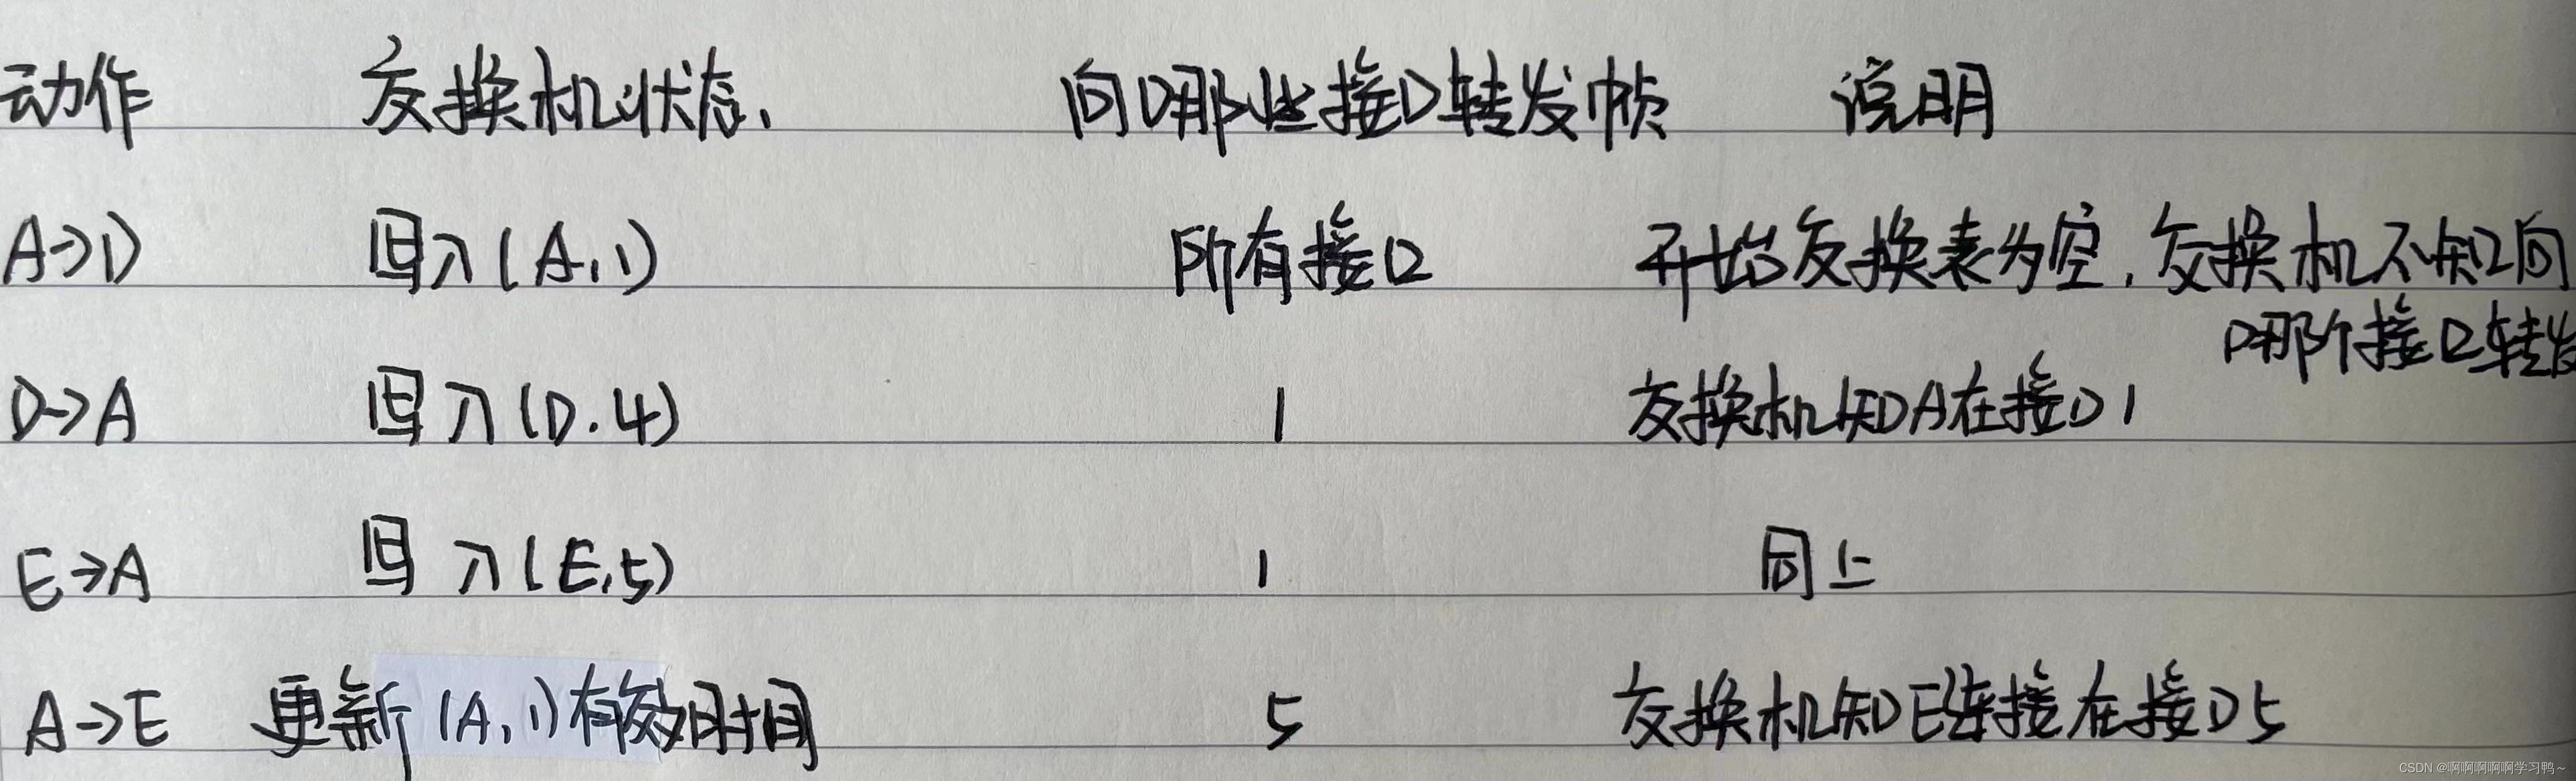 动作 交换机状态. 向哪些接口转发帧 说明
A→D 写入(A,1) 所有接口 开始交换表为空,交换机不知向
哪个接口转发
D→A 写入(D.4) 1 交换机知A在接口1
E→A 写入(E,5) 1 同上
A→E 更新(A,1)有效时间 5 交换机知E连接在接口5
CSDN @啊啊啊啊啊学习鸭~